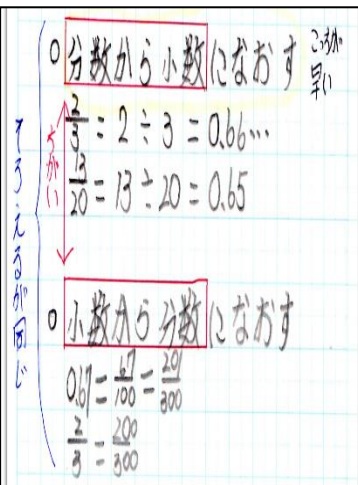 ○分数から小数になおす
こっちが早い
2/3 = 2÷3 = 0.66…
13/20 = 13÷20 = 0.65
ちがい
○小数から分数になおす
0.67 = 67/100 = 201/300
2/3 = 200/300